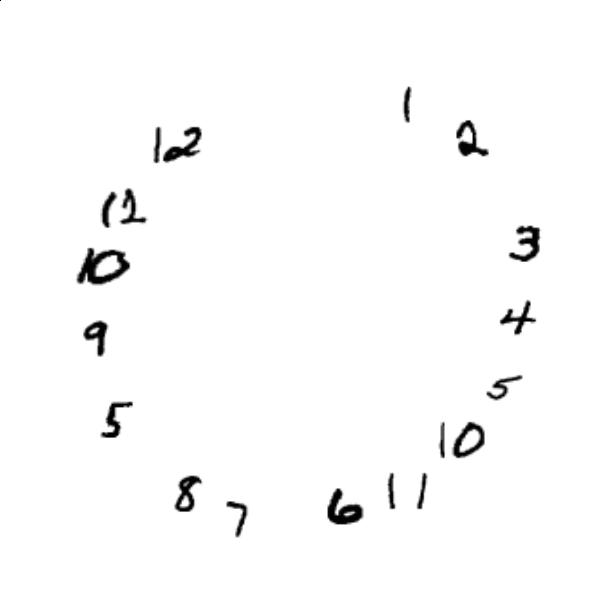 1
2
3
4
5
10
11
6
7
8
5
9
10
11
12